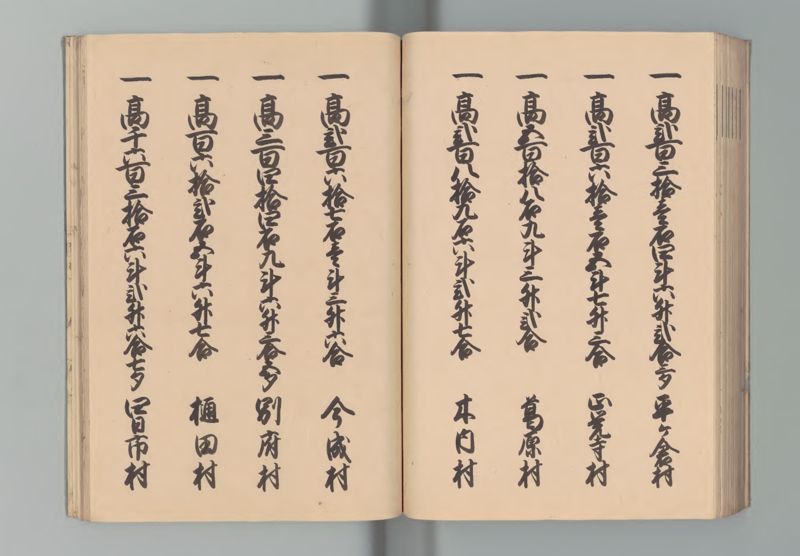 一 高弐百三拾壱石四斗六升弐合三夕 平ケ倉村
一 高弐百六拾壱石五斗七升三合 正覚寺村
一 高五百拾八石九斗三升弐合 葛原村
一 高弐百八拾九石六斗弐升七合 木内村
一 高弐百六拾七石壱斗三升六合 今成村
一 高三百四拾四石九斗六升三合五夕 別府村
一 高百六拾弐石五斗六升七合 樋田村
一 高千六百三拾石六斗弐升六合七夕 四日市村